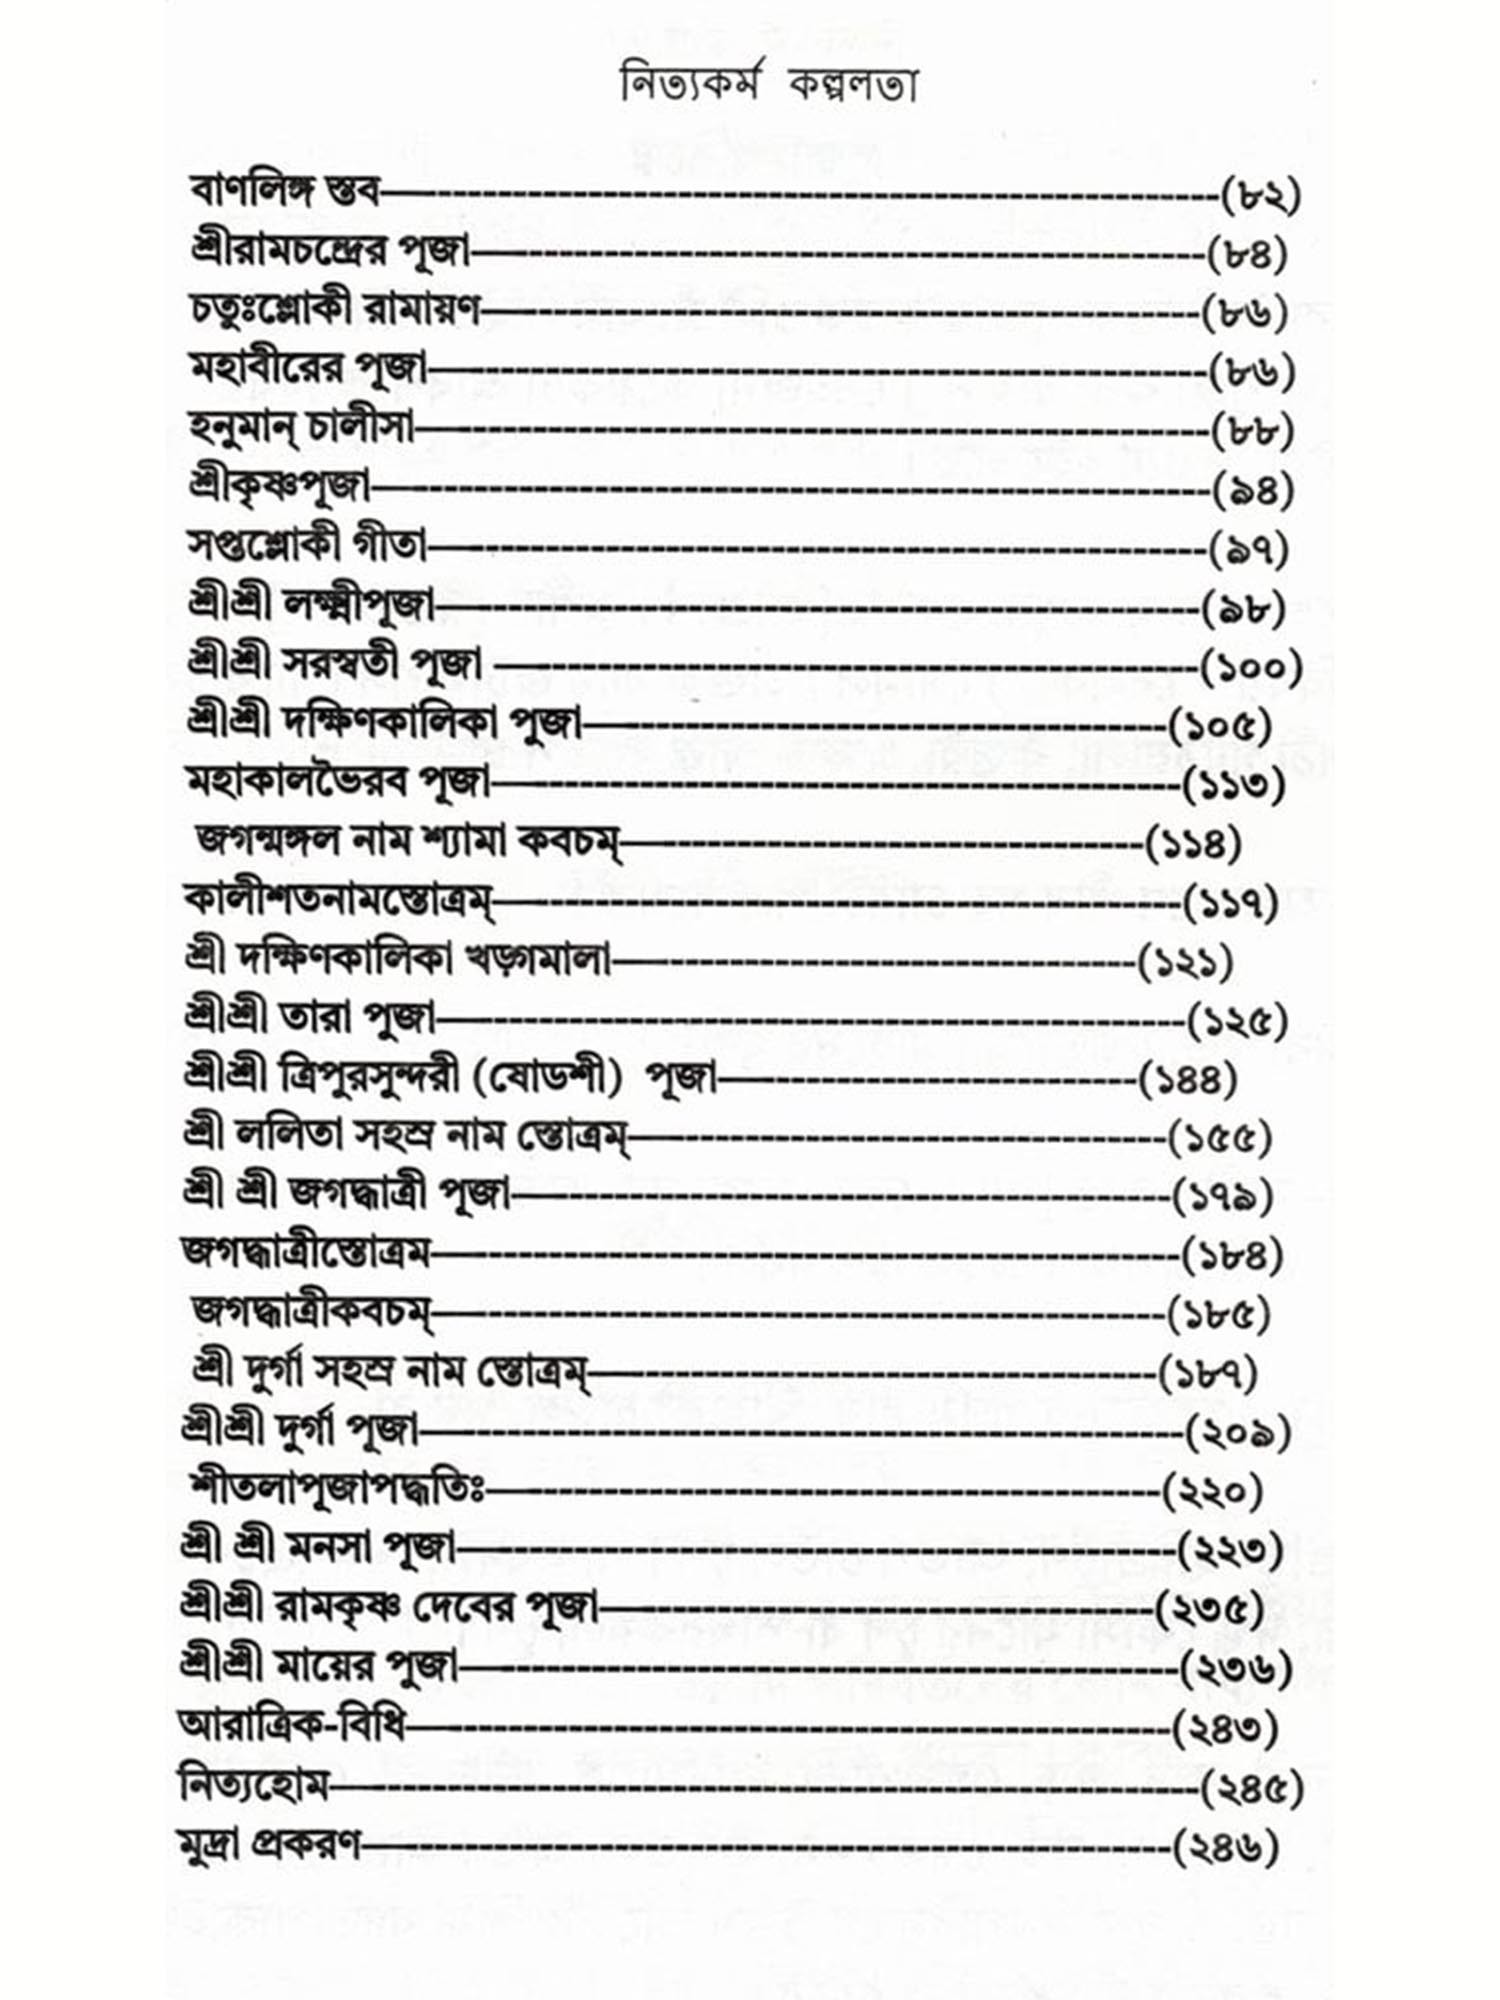 নিত্যকর্ম কল্পলতা
বাণলিঙ্গ স্তব------------------------------(৮২)
শ্রীরামচন্দ্রের পূজা------------------------------(৮৪)
চতুঃশ্লোকী রামায়ণ------------------------------(৮৬)
মহাবীরের পূজা------------------------------(৮৬)
হনুমান্ চালীসা------------------------------(৮৮)
শ্রীকৃষ্ণপূজা------------------------------(৯৪)
সপ্তশ্লোকী গীতা------------------------------(৯৭)
শ্রীশ্রী লক্ষ্মীপূজা------------------------------(৯৮)
শ্রীশ্রী সরস্বতী পূজা ------------------------------(১০০)
শ্রীশ্রী দক্ষিণকালিকা পুজা------------------------------(১০৫)
মহাকালভৈরব পূজা------------------------------(১১৩)
জগন্মঙ্গল নাম শ্যামা কবচম্------------------------------(১১৪)
কালীশতনামস্তোত্রম্------------------------------(১১৭)
শ্রী দক্ষিণকালিকা খড়্গমালা------------------------------(১২১)
শ্রীশ্রী তারা পুজা------------------------------(১২৫)
শ্রীশ্রী ত্রিপুরসুন্দরী (ষোডশী) পূজা------------------------------(১৪৪)
শ্রী ললিতা সহস্র নাম স্তোত্রম্------------------------------(১৫৫)
শ্রী শ্রী জগদ্ধাত্রী পূজা------------------------------(১৭৯)
জগদ্ধাত্রীস্তোত্রম------------------------------(১৮৪)
জগদ্ধাত্রীকবচম্------------------------------(১৮৫)
শ্রী দুর্গা সহস্র নাম স্তোত্রম্------------------------------(১৮৭)
শ্রীশ্রী দুর্গা পূজা------------------------------(২০৯)
শীতলাপূজাপদ্ধতিঃ------------------------------(২২০)
শ্রী শ্রী মনসা পূজা------------------------------(২২৩)
শ্রীশ্রী রামকৃষ্ণ দেবের পূজা------------------------------(২৩৫)
শ্রীশ্রী মায়ের পুজা------------------------------(২৩৬)
আরাত্রিক-বিধি------------------------------(২৪৩)
নিত্যহোম------------------------------(২৪৫)
মুদ্রা প্রকরণ------------------------------(২৪৬)